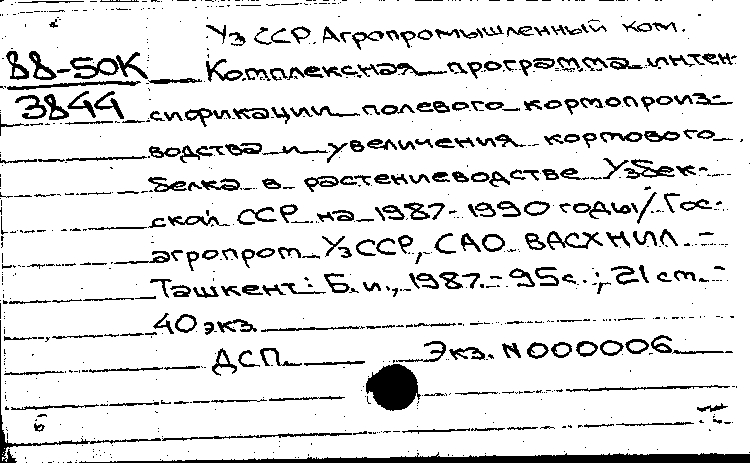 Уз ССР. Агропромышленный ком.
88-50К Комплексная программа интен-
3844 сификации полевого кормопроиз-
водства и увеличения кормового
белка в растениеводстве Узбек-
ской ССР на 1987-1990 годы / Гос-
агропром УзССР, САО ВАСХНИЛ. -
Ташкент: Б.и., 1987. - 95 с.; 21 см. -
40 экз.
ДСП. Экз. N000006.
б